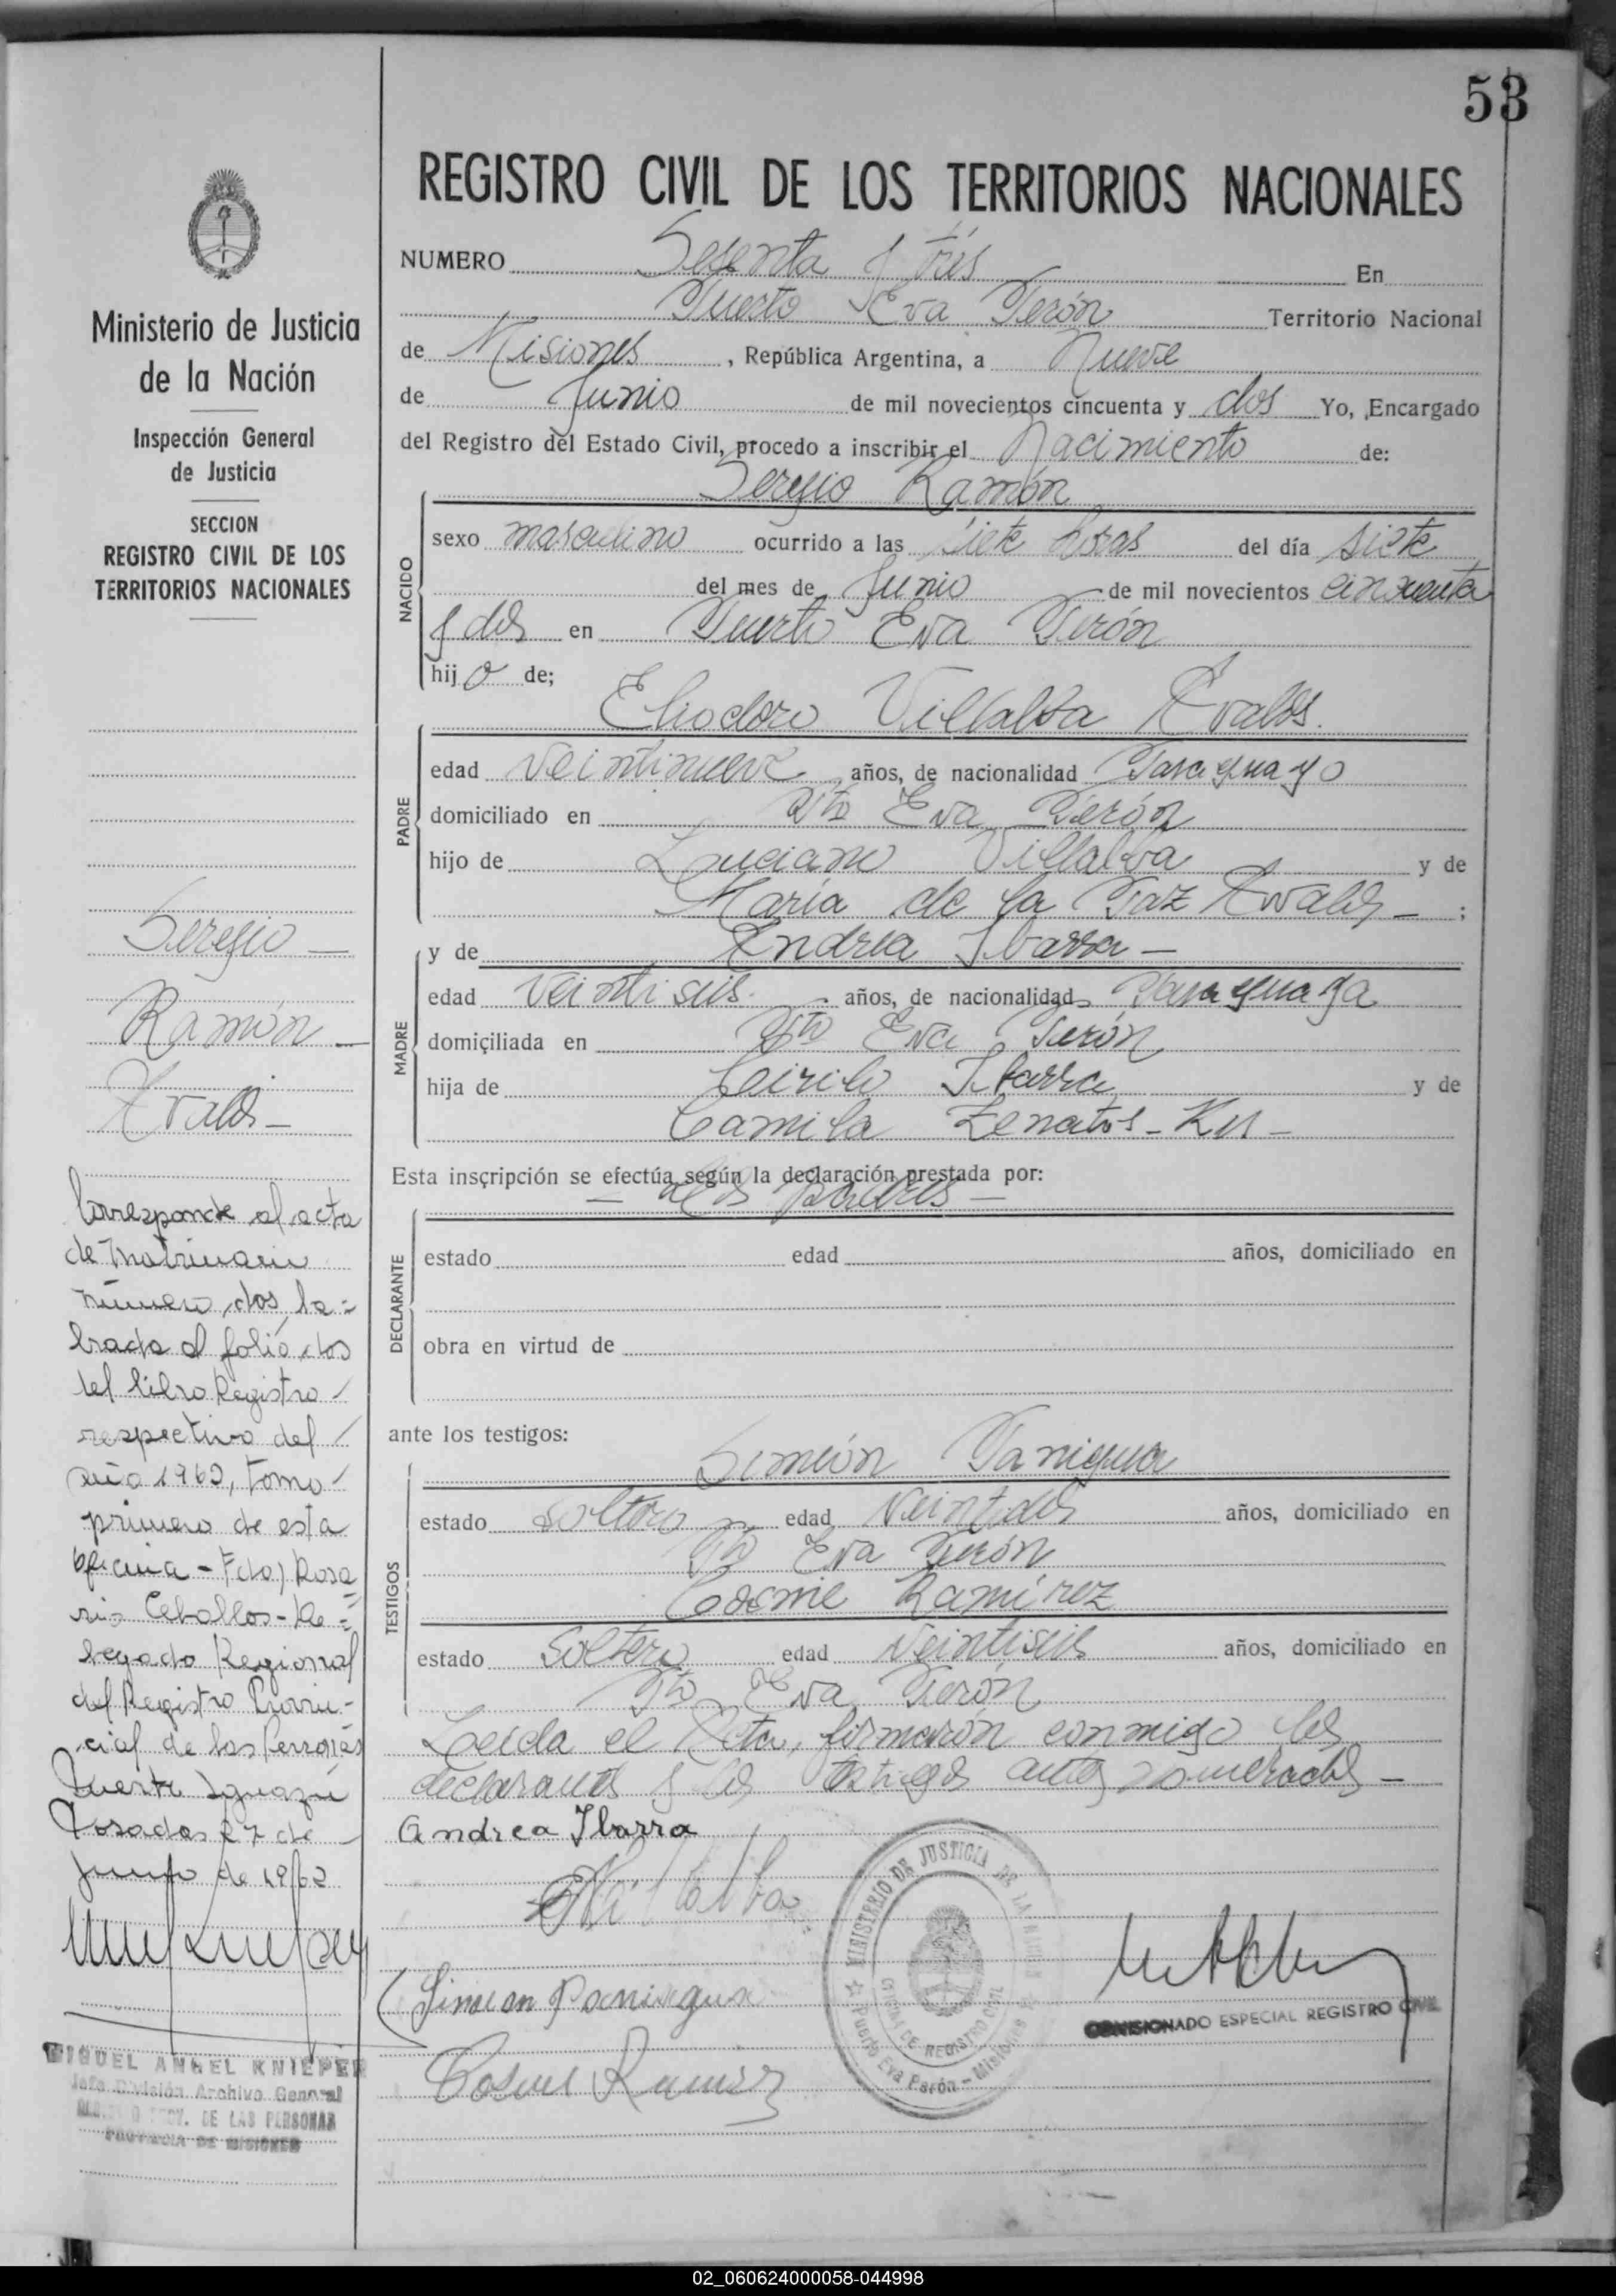 53
REGISTRO CIVIL DE LOS TERRITORIOS NACIONALES
NUMERO Sesenta y tres En
Puerto Eva Perón Territorio Nacional
de Misiones, República Argentina, a Nueve
de Junio de mil novecientos cincuenta y dos Yo, Encargado
del Registro del Estado Civil, procedo a inscribir el Nacimiento de:
Sergio Ramón
NACIDO
sexo masculino ocurrido a las siete horas del día siete
del mes de Junio de mil novecientos cincuenta
y dos en Puerto Eva Perón
hijo de;
Eliodoro Villalba Avalos.
PADRE
edad veintinueve años, de nacionalidad Paraguayo
domiciliado en Pto Eva Perón
hijo de Luciano Villalba y de
María de la Paz Avalos - ;
MADRE
y de Andrea Ibarra -
edad veintiseis años, de nacionalidad Paraguaya
domiciliada en Pto Eva Perón
hija de Cirilo Ibarra y de
Camila Zenatos -
Esta inscripción se efectúa según la declaración prestada por:
- los padres -
DECLARANTE
estado edad años, domiciliado en
obra en virtud de
ante los testigos:
Simeón Paniagua
TESTIGOS
estado soltero edad veintidos años, domiciliado en
Pto Eva Perón
Cosme Ramírez
estado soltero edad veintiseis años, domiciliado en
Pto Eva Perón
Leida el Acta, firmarón conmigo los
declarantes y los testigos antes -
Andrea Ibarra
Villalba
Simeon Paniagua
Cosme Ramirez
MINISTERIO DE JUSTICIA DE LA NACION
OFICINA DE REGISTRO CIVIL
Puerto Eva Perón - Misiones
COMISIONADO ESPECIAL REGISTRO CIVIL
Ministerio de Justicia
de la Nación
Inspección General
de Justicia
SECCION
REGISTRO CIVIL DE LOS
TERRITORIOS NACIONALES
Sergio -
Ramón -
Avalos -
Corresponde al acta
de Matrimonio
número dos, la=
brada al folio dos
del libro Registro
respectivo del
año 1962, tomo
primero de esta
oficina - Fdo) Rosa
rio Ceballos - De=
legado Regional
del Registro Provin-
cial de las Personas
Puerto Iguazú
Posadas 27 de
Junio de 1962
MIGUEL ANGEL KNIEPER
Jefe División Archivo General
PROV. DE LAS PERSONAS
PROVINCIA DE MISIONES
02_060624000058-044998